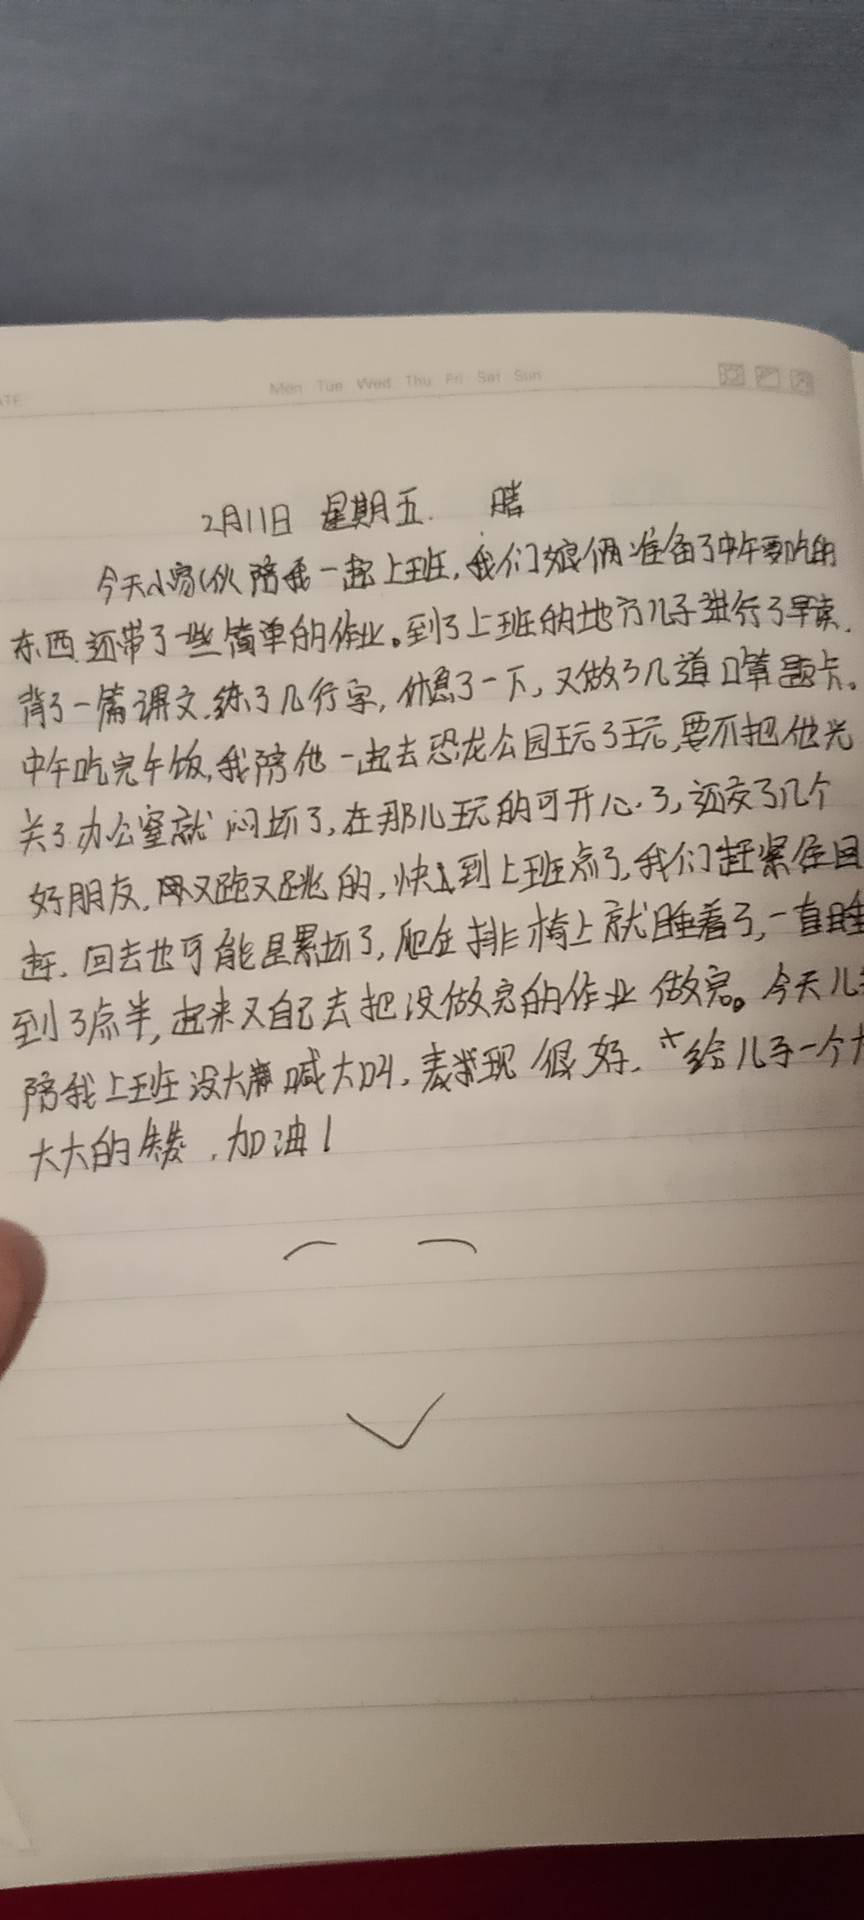 ATE
Mon Tue Wed Thu Fri Sat Sun
2月11日 星期五. 晴
今天小家伙陪我一起上班,我们娘俩准备了中午要吃的
东西,还带了一些简单的作业。到了上班的地方儿子进行了早读,
背了一篇课文,练了几行字,休息了一下,又做了几道口算题卡。
中午吃完午饭,我陪他一起去恐龙公园玩了玩,要不把他光
关了办公室就闷坏了,在那儿玩的可开心了,还交了几个
好朋友,又跑又跳的,快到上班点了,我们赶紧往回
赶.回去也可能是累坏了,爬在排椅上就睡着了,一直睡
到3点半,起来又自己去把没做完的作业做完。今天儿
陪我上班没大喊大叫,表现很好.给儿子一个大
大大的赞,加油!